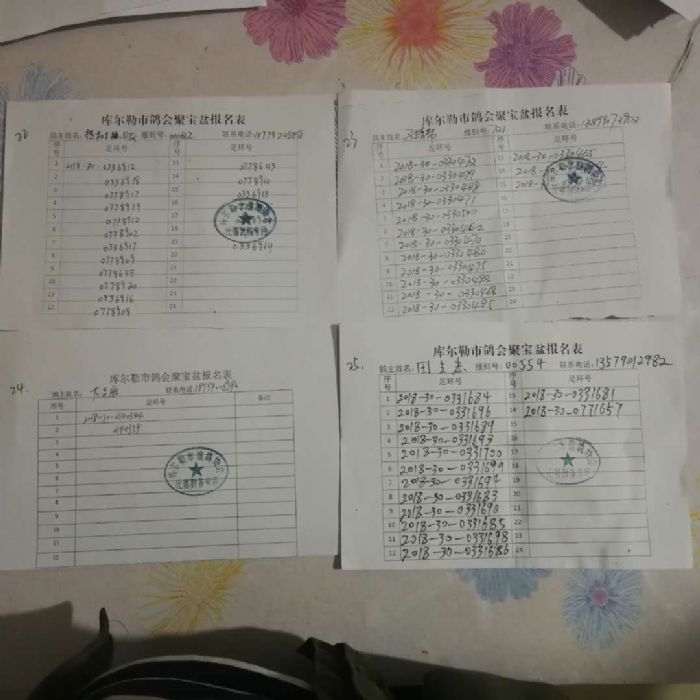 22
库尔勒市鸽会聚宝盆报名表
鸽主姓名: 报到号: 00082 联系电话:
序号 足环号 序号 足环号
1 2018-30-0336912 13 0778643
2 0336918 14
3 0778917 15 0336913
4 0778919 16
5 0778912 17
6 0778902 18
7 0336917 19 0336914
8 0778909 20
9 0778645 21
10 0778920 22
11 0336916 23
12 0778908 24
23
库尔勒市鸽会聚宝盆报名表
鸽主姓名: 报到号: 321 联系电话:
序号 足环号 序号 足环号
1 2018-30-0330432 13 2018-30-0330465
2 2018-30-0330499 14 2018-30-
3 2018-30-0330498 15 2018-30
4 2018-30-0330471 16
5 2018-30-0330500 17
6 2018-30-0330462 18
7 2018-30-0330470 19
8 2018-30-0330480 20
9 2018-30-0330475 21
10 2018-30-0330488 22
11 2018-30-0330468 23
12 2018-30-0330495 24
24.
库尔勒市鸽会聚宝盆报名表
鸽主姓名: 联系电话:
序号 足环号 备注
1 2018-30-0340344
2 0340339
3
4
5
6
7
8
9
10
11
12
25.
库尔勒市鸽会聚宝盆报名表
鸽主姓名: 报到号: 00554 联系电话: 13579012982
序号 足环号 序号 足环号
1 2018-30-0331684 13 2018-30-0331681
2 2018-30-0331696 14 2018-30-0771657
3 2018-30-0331689 15
4 2018-30-0331693 16
5 2018-30-0331700 17
6 2018-30-0331699 18
7 2018-30-0331694 19
8 2018-30-0331683 20
9 2018-30-0331690 21
10 2018-30-0331685 22
11 2018-30-0331698 23
12 2018-30-0331686 24